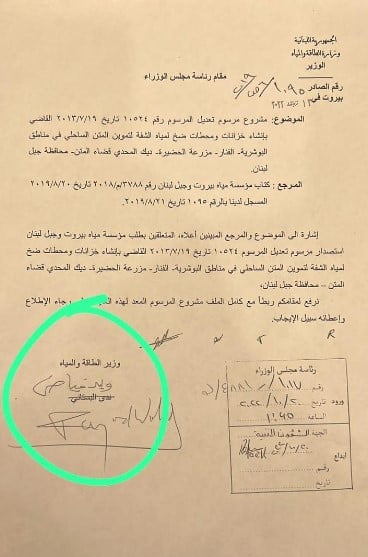 الجمهورية اللبنانية
وزارة الطاقة والمياه
الوزير
مقام رئاسة مجلس الوزراء
رقم الصادر
بيروت في
الموضوع: مشروع مرسوم تعديل المرسوم رقم ١٠٥٢٤ تاريخ ٢٠١٣/٧/١٩ القاضي
بإنشاء خزانات ومحطات ضخ لمياه الشفة لتموين المتن الساحلي في مناطق
البوشرية- الفنار- مزرعة الحضيرة- ديك المحدي قضاء المتن- محافظة جبل
لبنان.
المرجع : كتاب مؤسسة مياه بيروت وجبل لبنان رقم ٣٧٨٨/م/٢٠١٨ تاريخ ٢٠١٩/٨/٢٠
المسجل لدينا بالرقم ١٠٩٥ تاريخ ٢٠١٩/٨/٢١
إشارة الى الموضوع والمرجع المبينين أعلاه، المتعلقين بطلب مؤسسة مياه بيروت وجبل لبنان
استصدار مرسوم تعديل المرسوم رقم ١٠٥٢٤ تاريخ ٢٠١٣/٧/١٩ القاضي بإنشاء خزانات ومحطات ضخ
لمياه الشفة لتموين المتن الساحلي في مناطق البوشرية- الفنار- مزرعة الحضيرة- ديك المحدي قضاء
المتن – محافظة جبل لبنان،
نرفع لمقامكم ربطاً مع كامل الملف مشروع المرسوم المعد لهذه جاء الإطلاع
وإعطائه سبيل الإيجاب.
وزير الطاقة والمياه
وليد فياض
ندى البستاني
رئاسة مجلس الوزراء
رقم
ورود تاريخ
الساعة
ايداع
رقم
تاريخ